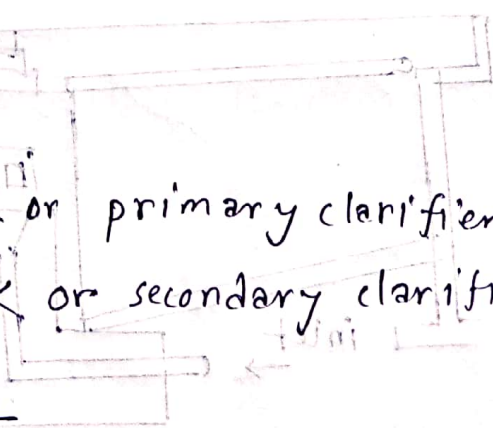 or primary clarifier
or secondary clarifi